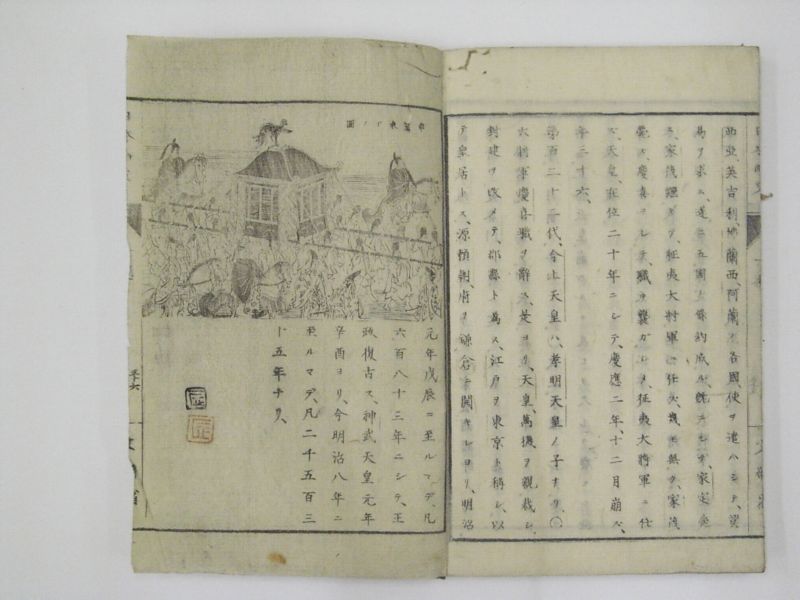 西亜、英吉利、佛蘭西、阿蘭ノ各國、使ヲ遣ハシテ、貿
易ヲ求ム、遂ニ五國ト條約成ル、既ニシテ、家定薨
ス、家茂踵ギテ、征夷大将軍ニ任ス、幾モ無ク、家茂
薨ス、慶喜ヲシテ、職ヲ襲ガシメ、征夷大将軍ニ任
ス、天皇、在位二十年ニシテ、慶應二年、十二月崩ズ、
年三十六、
第百二十二代、今上天皇ハ、孝明天皇ノ子ナリ、〇
大将軍慶喜職ヲ辭ス、是ヨリ、天皇、萬機ヲ親裁シ、
封建ヲ改メテ、郡縣ト為ス、江戸ヲ東京ト稱シ、以
テ皇居トス、源頼朝、府ヲ鎌倉ニ開キシヨリ、明治
車駕東下ノ圖
元年戊辰ニ至ルマデ、凡
六百八十三年ニシテ、王
政復古ス、神武天皇元年
辛酉ヨリ、今明治八年ニ
至ルマデ、凡二千五百三
十五年ナリ、